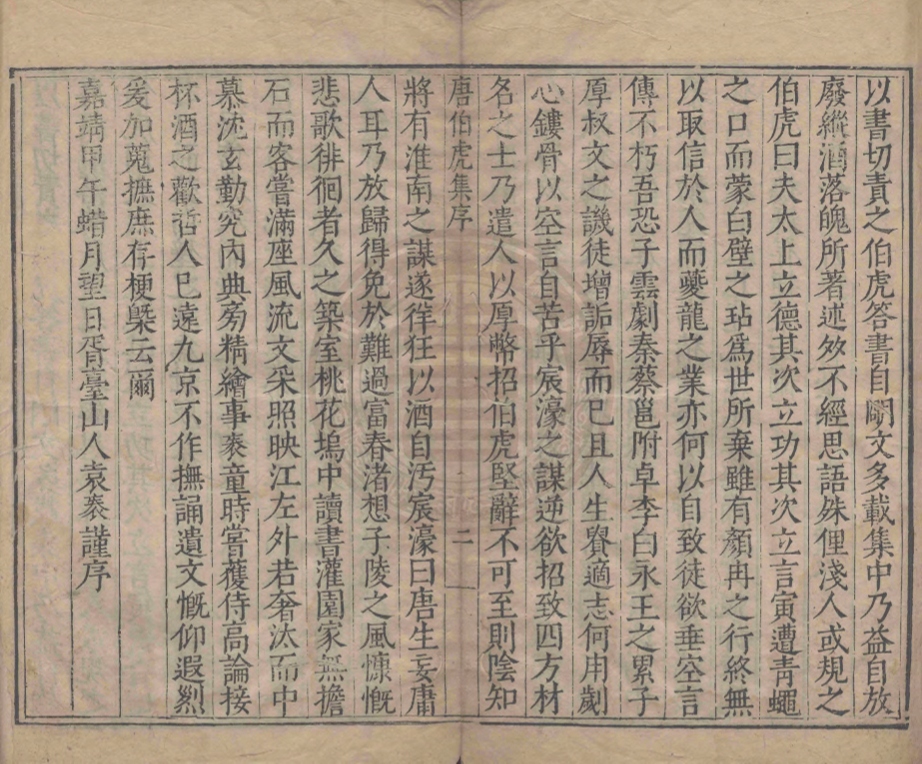 以書切責之伯虎答書自闢文多載集中乃益自放
廢縱酒落魄所著述多不經思語殊俚淺人或規之
伯虎曰夫太上立德其次立功其次立言寅遭青蠅
之口而蒙白璧之玷爲世所棄雖有顏冉之行終無
以取信於人而夔龍之業亦何以自致徒欲垂空言
傳不朽吾恐子雲劇秦蔡邕附卓李白永王之累子
厚叔文之譏徒增詬辱而已且人生貴適志何用劌
心鏤骨以空言自苦乎宸濠之謀逆欲招致四方材
名之士乃遣人以厚幣招伯虎堅辭不可至則陰知
唐伯虎集序
二
將有淮南之謀遂徉狂以酒自汚宸濠曰唐生妄庸
人耳乃放歸得免於難過富春渚想子陵之風慷慨
悲歌徘徊者久之築室桃花塢中讀書灌園家無擔
石而客嘗滿座風流文采照映江左外若奢汰而中
慕沈玄勤究內典旁精繪事袠童時嘗獲侍高論接
杯酒之歡哲人已遠九京不作撫誦遺文慨仰遐烈
爰加蒐摭庶存梗槩云爾
嘉靖甲午蜡月望日胥臺山人袁袠謹序